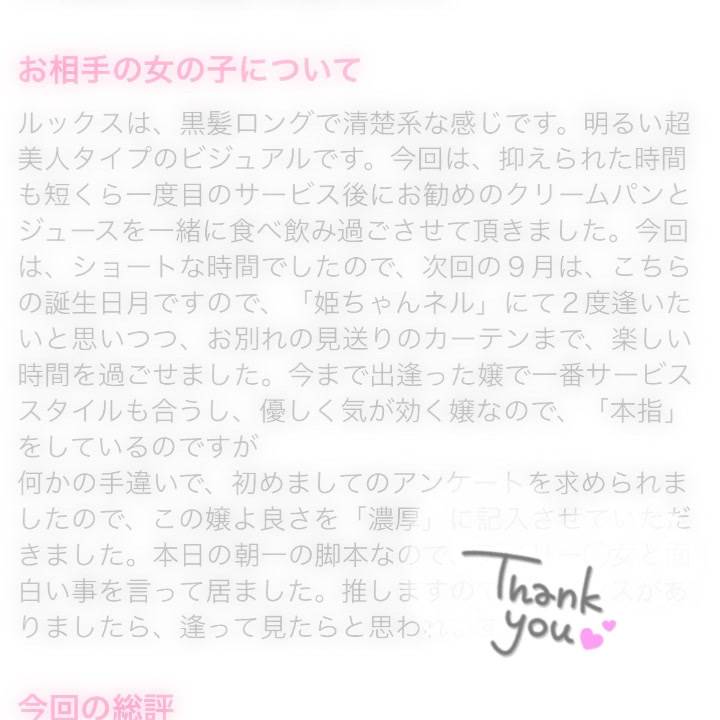 お相手の女の子について
ルックスは、黒髪ロングで清楚系な感じです。明るい超
美人タイプのビジュアルです。今回は、抑えられた時間
も短くら一度目のサービス後にお勧めのクリームパンと
ジュースを一緒に食べ飲み過ごさせて頂きました。今回
は、ショートな時間でしたので、次回の９月は、こちら
の誕生日月ですので、「姫ちゃんネル」にて２度逢いた
いと思いつつ、お別れの見送りのカーテンまで、楽しい
時間を過ごせました。今まで出逢った嬢で一番サービス
スタイルも合うし、優しく気が効く嬢なので、「本指」
をしているのですが
何かの手違いで、初めましてのアンケートを求められま
したので、この嬢よ良さを「濃厚」に記入させていただ
きました。本日の朝一の脚本なので、
白い事を言って居ました。推しますので
りましたら、逢って見たらと思わ
Thank
you
今回の総評